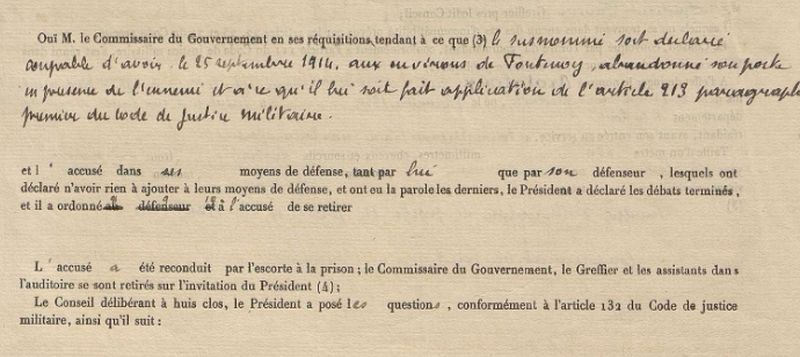 Ouï M. le Commissaire du Gouvernement en ses réquisitions, tendant à ce que (3) le susnommé soit déclaré
coupable d'avoir, le 25 septembre 1914, aux environs de Fontenoy, abandonné son poste
en présence de l'ennemi et à ce qu'il lui soit fait application de l'article 213 paragraphe
premier du code de Justice Militaire.
et l' accusé dans ses moyens de défense, tant par lui que par son défenseur , lesquels ont
déclaré n'avoir rien à ajouter à leurs moyens de défense, et ont eu la parole les derniers, le Président a déclaré les débats terminés,
et il a ordonné au défenseur et à l'accusé de se retirer
L' accusé a été reconduit par l'escorte à la prison ; le Commissaire du Gouvernement, le Greffier et les assistants dans
l'auditoire se sont retirés sur l'invitation du Président (4) ;
Le Conseil délibérant à huis clos, le Président a posé les questions , conformément à l'article 132 du Code de justice
militaire, ainsi qu'il suit :